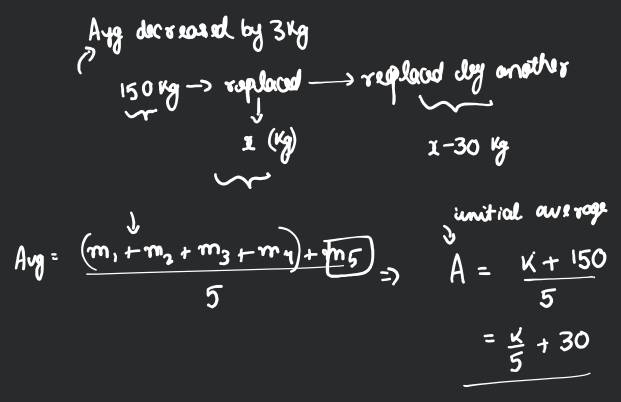 Avg decreased by 3Kg
150 Kg → replaced → replaced by another
x (Kg)
x-30 Kg
initial average
Avg = (m₁ + m₂ + m₃ + m₄) + m5 / 5 ⇒ A = K + 150 / 5
= K/5 + 30